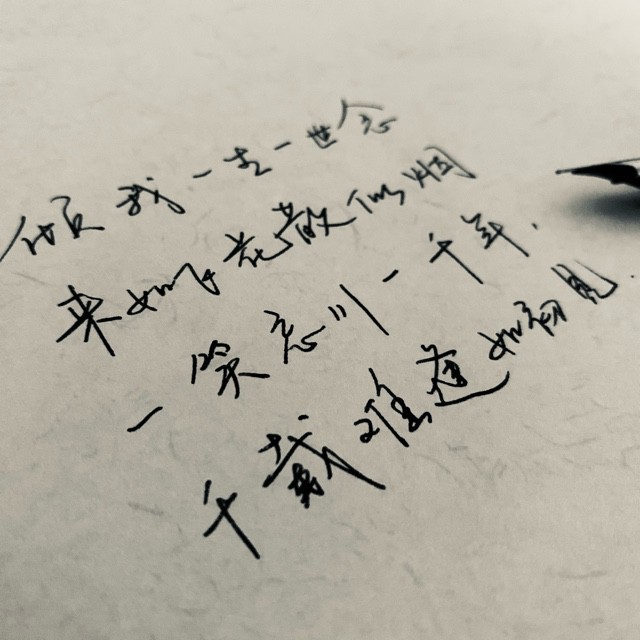 倾我一生一世念
来如飞花散似烟
一哭忘川一千年.
千载难逢如初见.